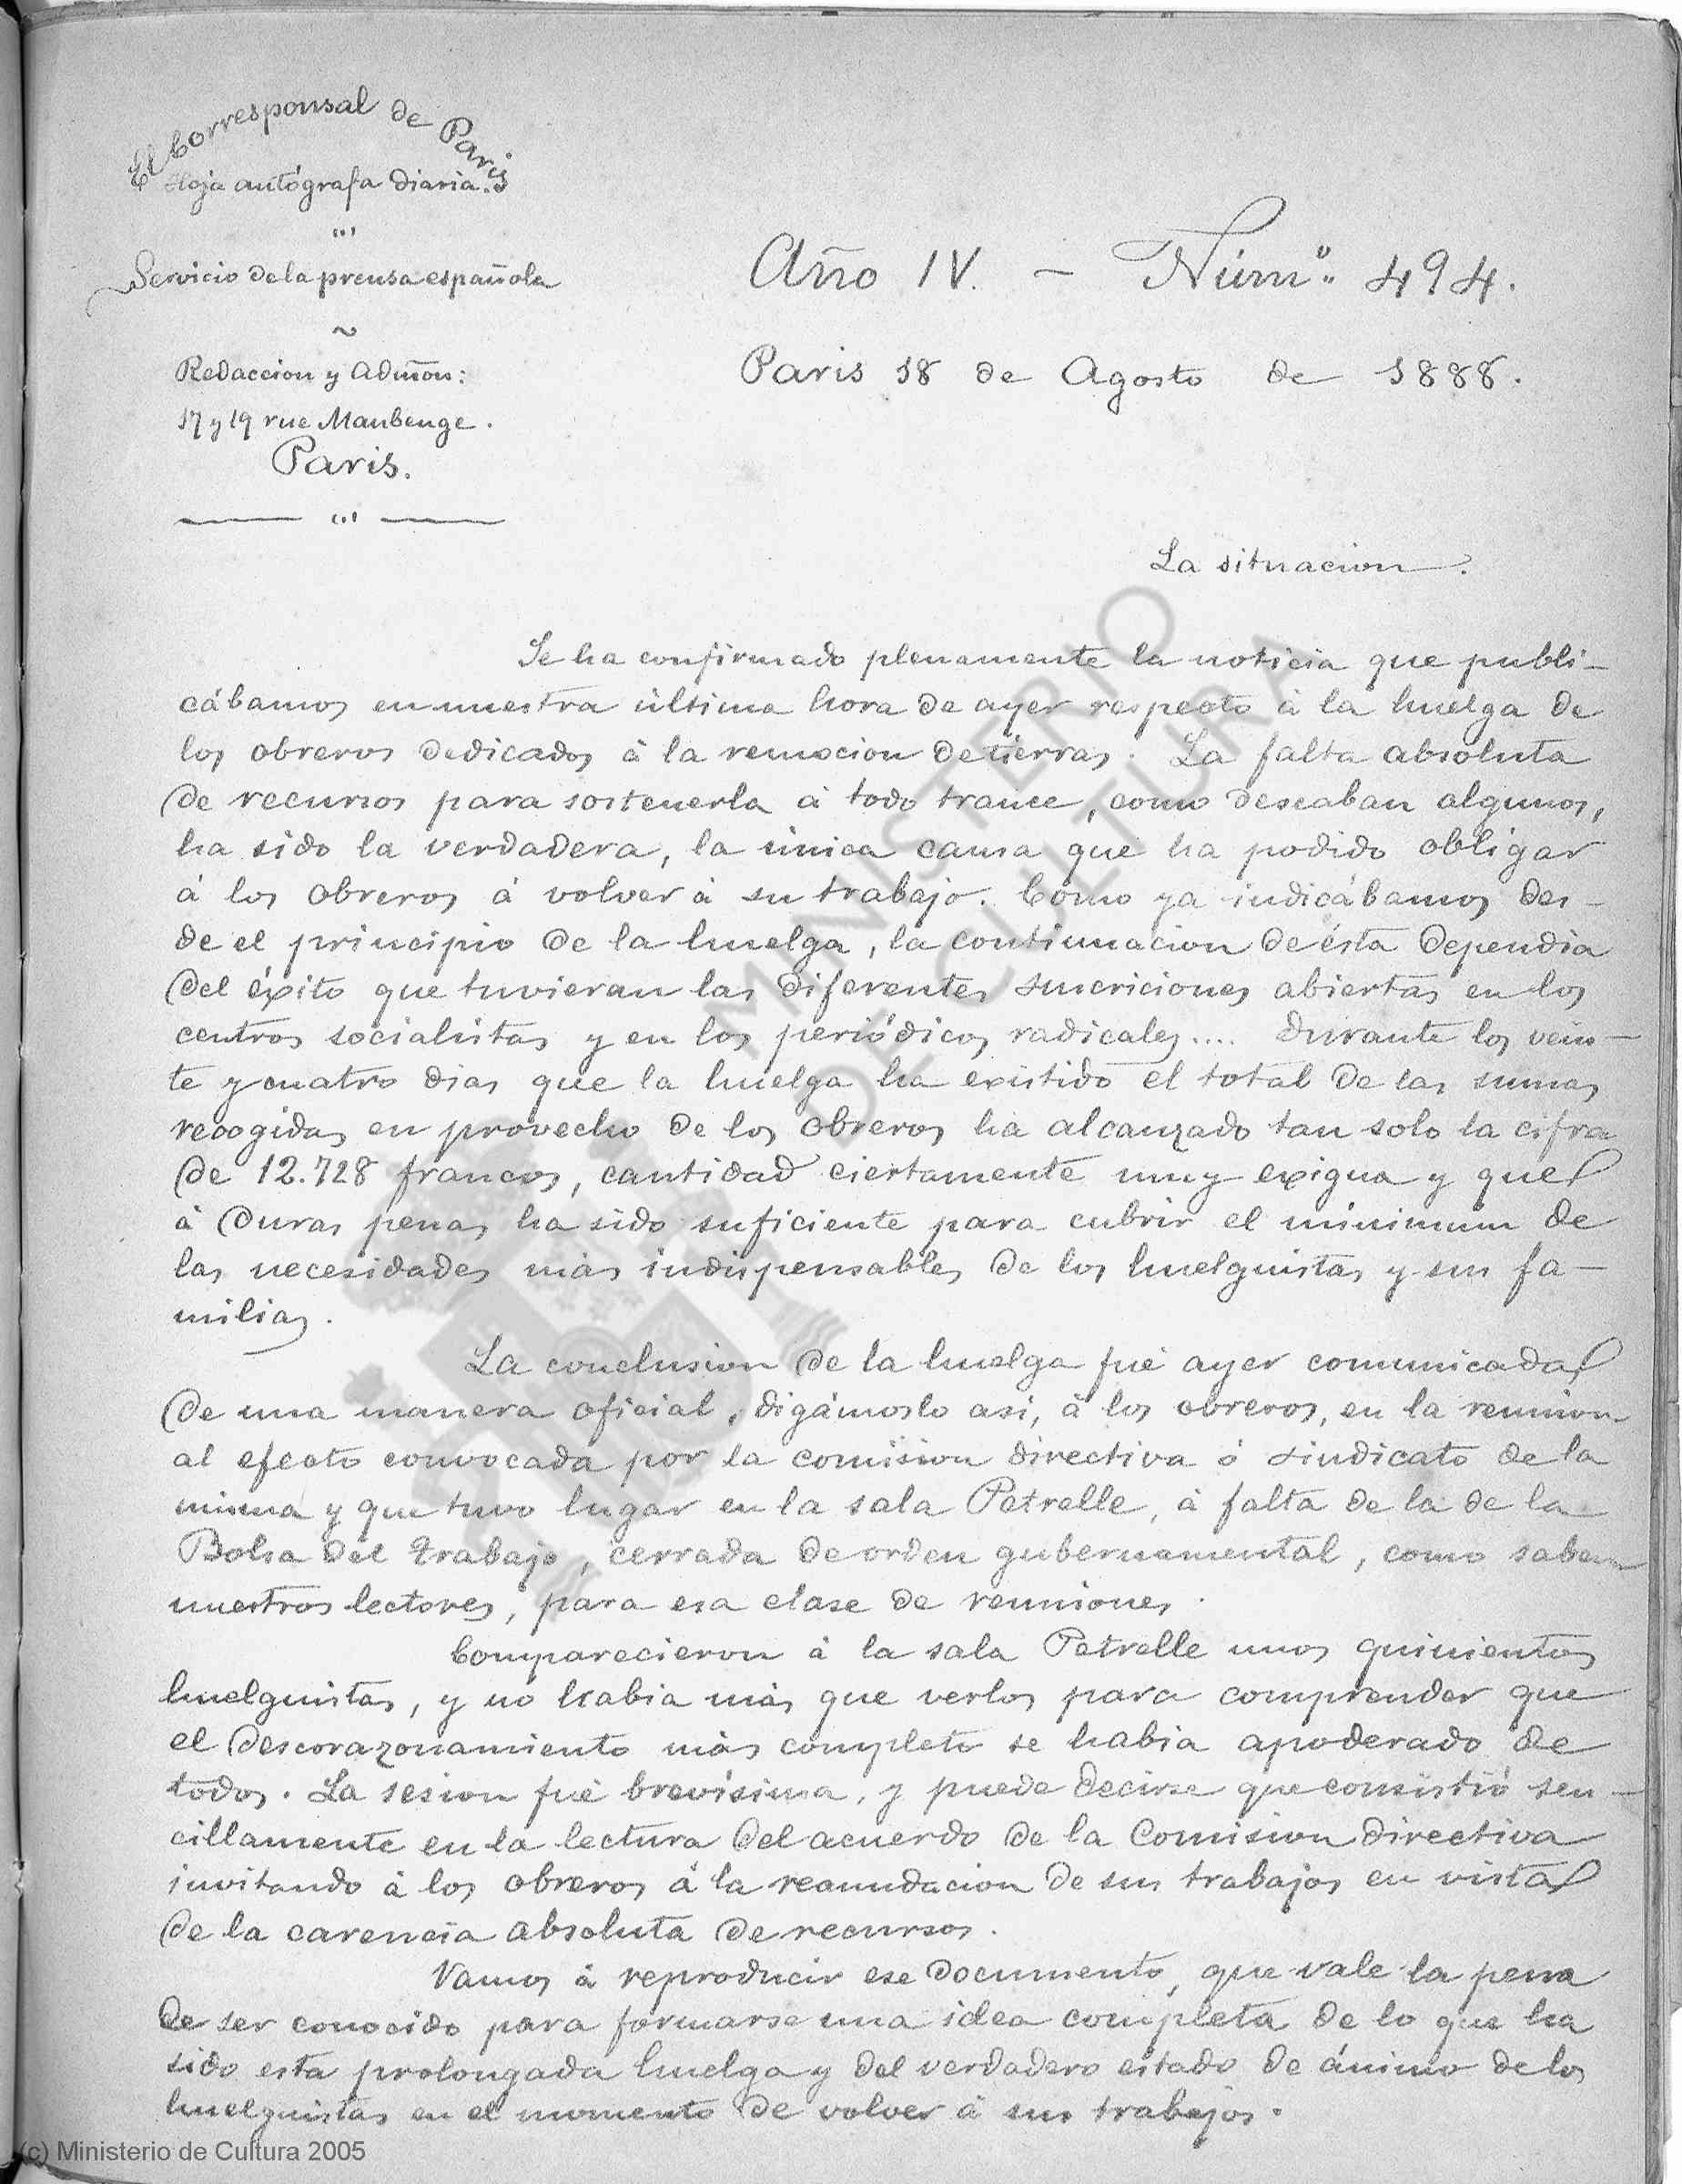 El Corresponsal de Paris
Hoja autógrafa diaria.
Servicio de la prensa española
Redaccion y Admōn:
17 y 19 rue Maubenge.
Paris.
Año IV. — Núm.º 494.
Paris 18 de Agosto de 1888.
La situacion.
Se ha confirmado plenamente la noticia que publi-
cábamos en nuestra última hora de ayer respecto á la huelga de
los obreros dedicados á la remocion de tierras. La falta absoluta
de recursos para sostenerla á todo trance, como deseaban algunos,
ha sido la verdadera, la única causa que ha podido obligar
á los obreros á volver á su trabajo. Cómo ya indicábamos des-
de el principio de la huelga, la continuacion de ésta dependia
del éxito que tuvieran las diferentes suscriciones abiertas en los
centros socialistas y en los periódicos radicales.... Durante los vein-
te y cuatro dias que la huelga ha existido el total de las sumas
recogidas en provecho de los obreros ha alcanzado tan solo la cifra
de 12.728 francos, cantidad ciertamente muy exigua y que
á duras penas ha sido suficiente para cubrir el minimum de
las necesidades más indispensables de los huelguistas y sus fa-
milias.
La conclusion de la huelga fué ayer comunicada
de una manera oficial, digámoslo asi, á los obreros, en la reunion
al efecto convocada por la comision directiva ó sindicato de la
misma y que tuvo lugar en la sala Petrelle, á falta de la de la
Bolsa del Trabajo, cerrada de orden gubernamental, como saben
nuestros lectores, para esa clase de reuniones.
Comparecieron á la sala Petrelle unos quinientos
huelguistas, y no habia más que verlos para comprender que
el descorazonamiento más completo se habia apoderado de
todos. La sesion fué brevísima, y puede decirse que consistió sen-
cillamente en la lectura del acuerdo de la Comision directiva
invitando á los obreros á la reanudacion de sus trabajos en vista
de la carencia absoluta de recursos.
Vamos á reproducir ese documento, que vale la pena
de ser conocido para formarse una idea completa de lo que ha
sido esta prolongada huelga y del verdadero estado de ánimo de los
huelguistas en el momento de volver á sus trabajos.
MINISTERIO
DE CULTURA
(c) Ministerio de Cultura 2005